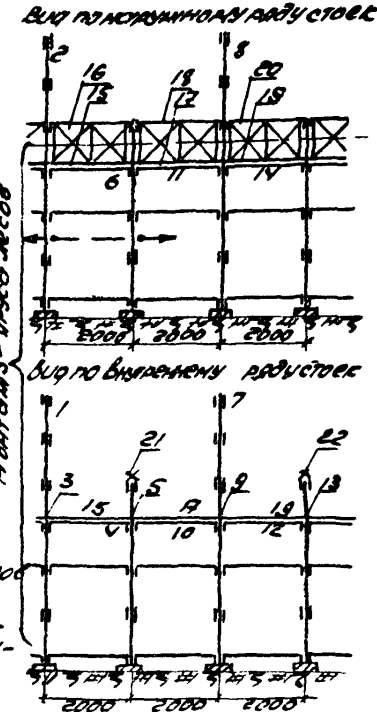 Вид по наружному ряду стоек
2 8
16 18 20
15 17 19
6 11 14
2000 2000 2000
Вид по внутреннему ряду стоек
1 7
21 22
3 5 9 13
15 17 19
4 10 12
2000 2000 2000